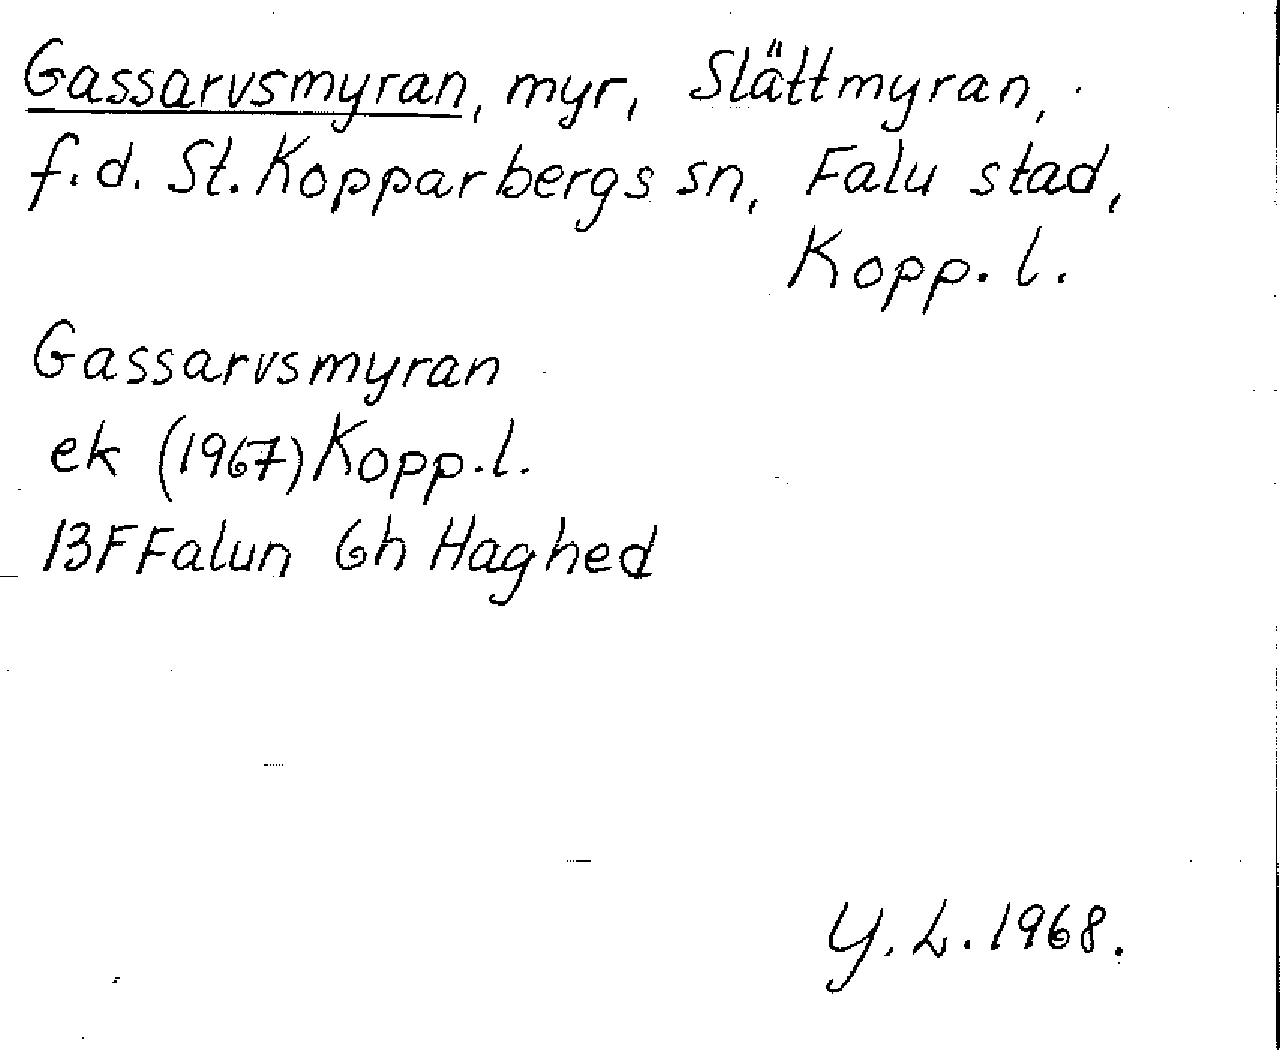 Gassarvsmyran, myr, Slättmyran,
f.d. St. Kopparbergs sn, Falu stad,
Kopp. l.
Gassarvsmyran
ek (1967) Kopp. l.
13F Falun 6h Haghed
Y. L. 1968.